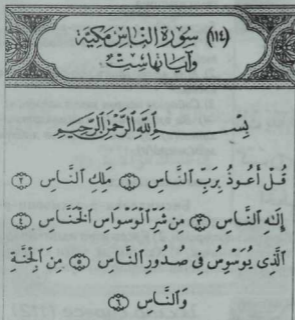 (١١٤) سُورَةُ النَّاسِ مَكِّيَّة
وَآيَاتُهَا سِتٌّ
بِسْمِ اللَّهِ الرَّحْمَٰنِ الرَّحِيمِ
قُلْ أَعُوذُ بِرَبِّ النَّاسِ ١ مَلِكِ النَّاسِ ٢
إِلَٰهِ النَّاسِ ٣ مِن شَرِّ الْوَسْوَاسِ الْخَنَّاسِ ٤
الَّذِي يُوَسْوِسُ فِي صُدُورِ النَّاسِ ٥ مِنَ الْجِنَّةِ
وَالنَّاسِ ٦